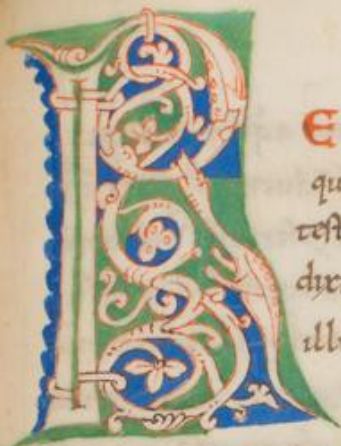 R E
qu
test
dix
ill